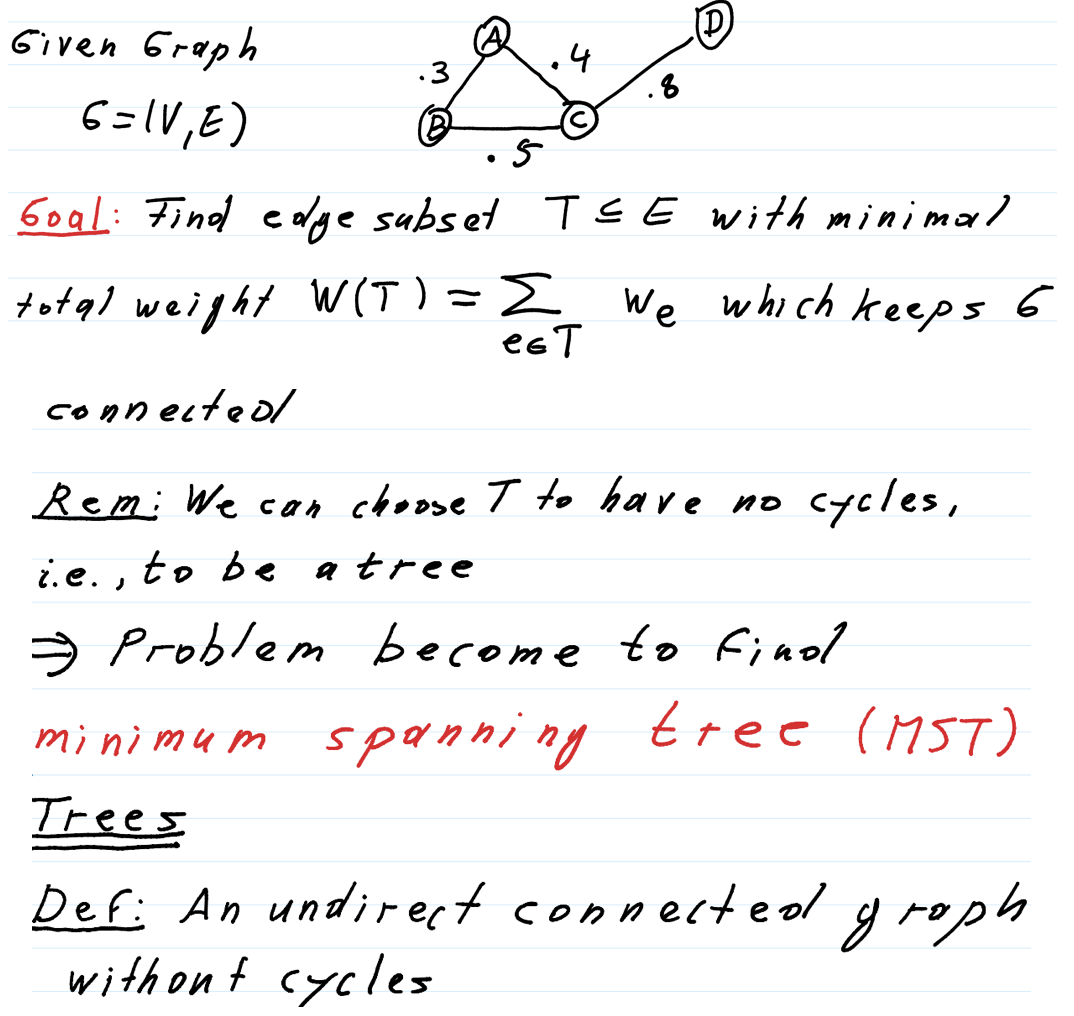 Given Graph
G=(V,E)
A
D
.3
.4
.8
B
C
.5
Goal: Find edge subset T ⊆ E with minimal
total weight W(T) = ∑ e∈T We which keeps G
connected
Rem: We can choose T to have no cycles,
i.e., to be a tree
⇒ Problem become to find
minimum spanning tree (MST)
Trees
Def: An undirect connected graph
without cycles